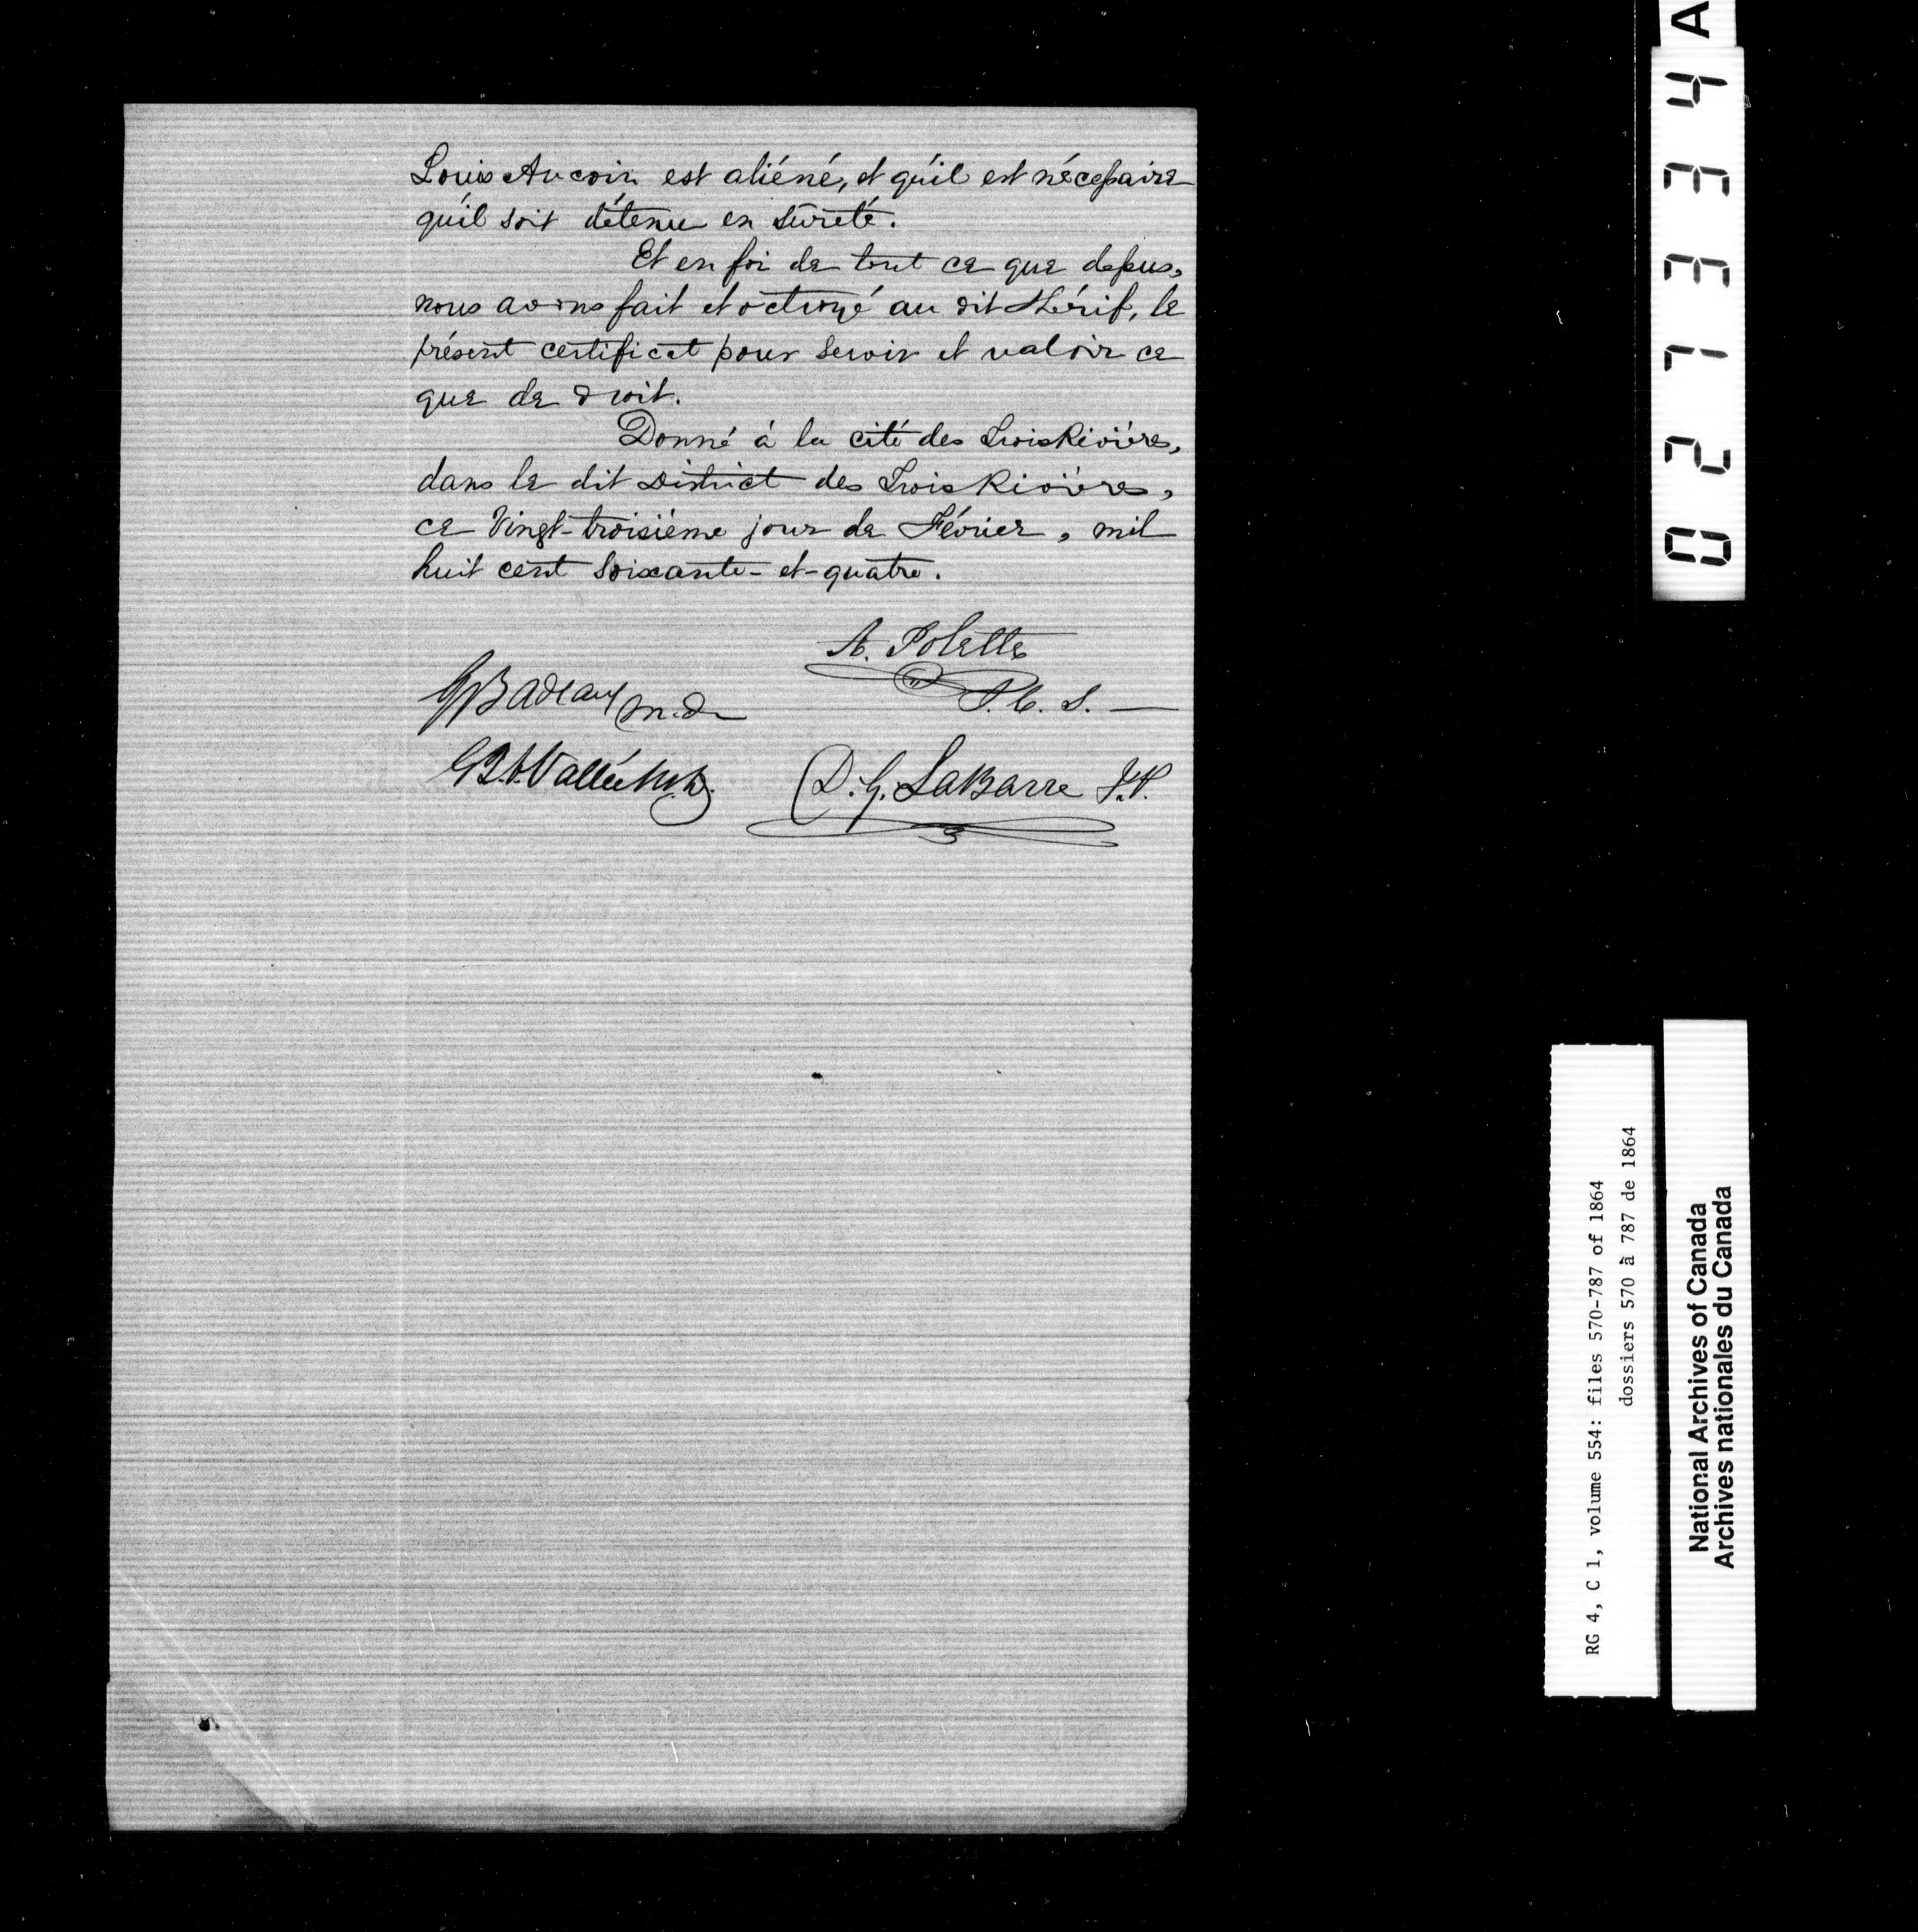 Louis Aucoin est aliéné, et qu'il est nécessaire
qu'il soit détenu en sûreté.
Et en foi de tout ce que dessus,
nous avons fait et octroyé au dit Shérif, le
présent certificat pour servir et valoir ce
que de droit.
Donné à la cité des Trois Rivières,
dans le dit District des Trois Rivières,
ce Vingt-troisième jour de Février, mil
huit cent soixante-et-quatre.
A. Polette
J. C. S.
G Badeaux m.d
Vallée M.D.
D. G. LaBarre J.P.
0 2 7 3 3 4 A
RG 4, C 1, volume 554: files 570-787 of 1864
dossiers 570 à 787 de 1864
National Archives of Canada
Archives nationales du Canada